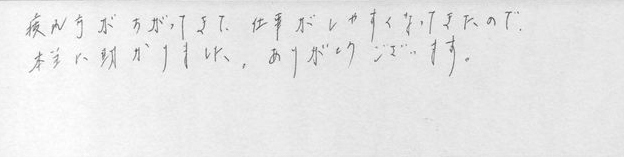 痰の方がちがってきて、仕事がしやすくなってきたので、
本当に助かりました。ありがとうございます。